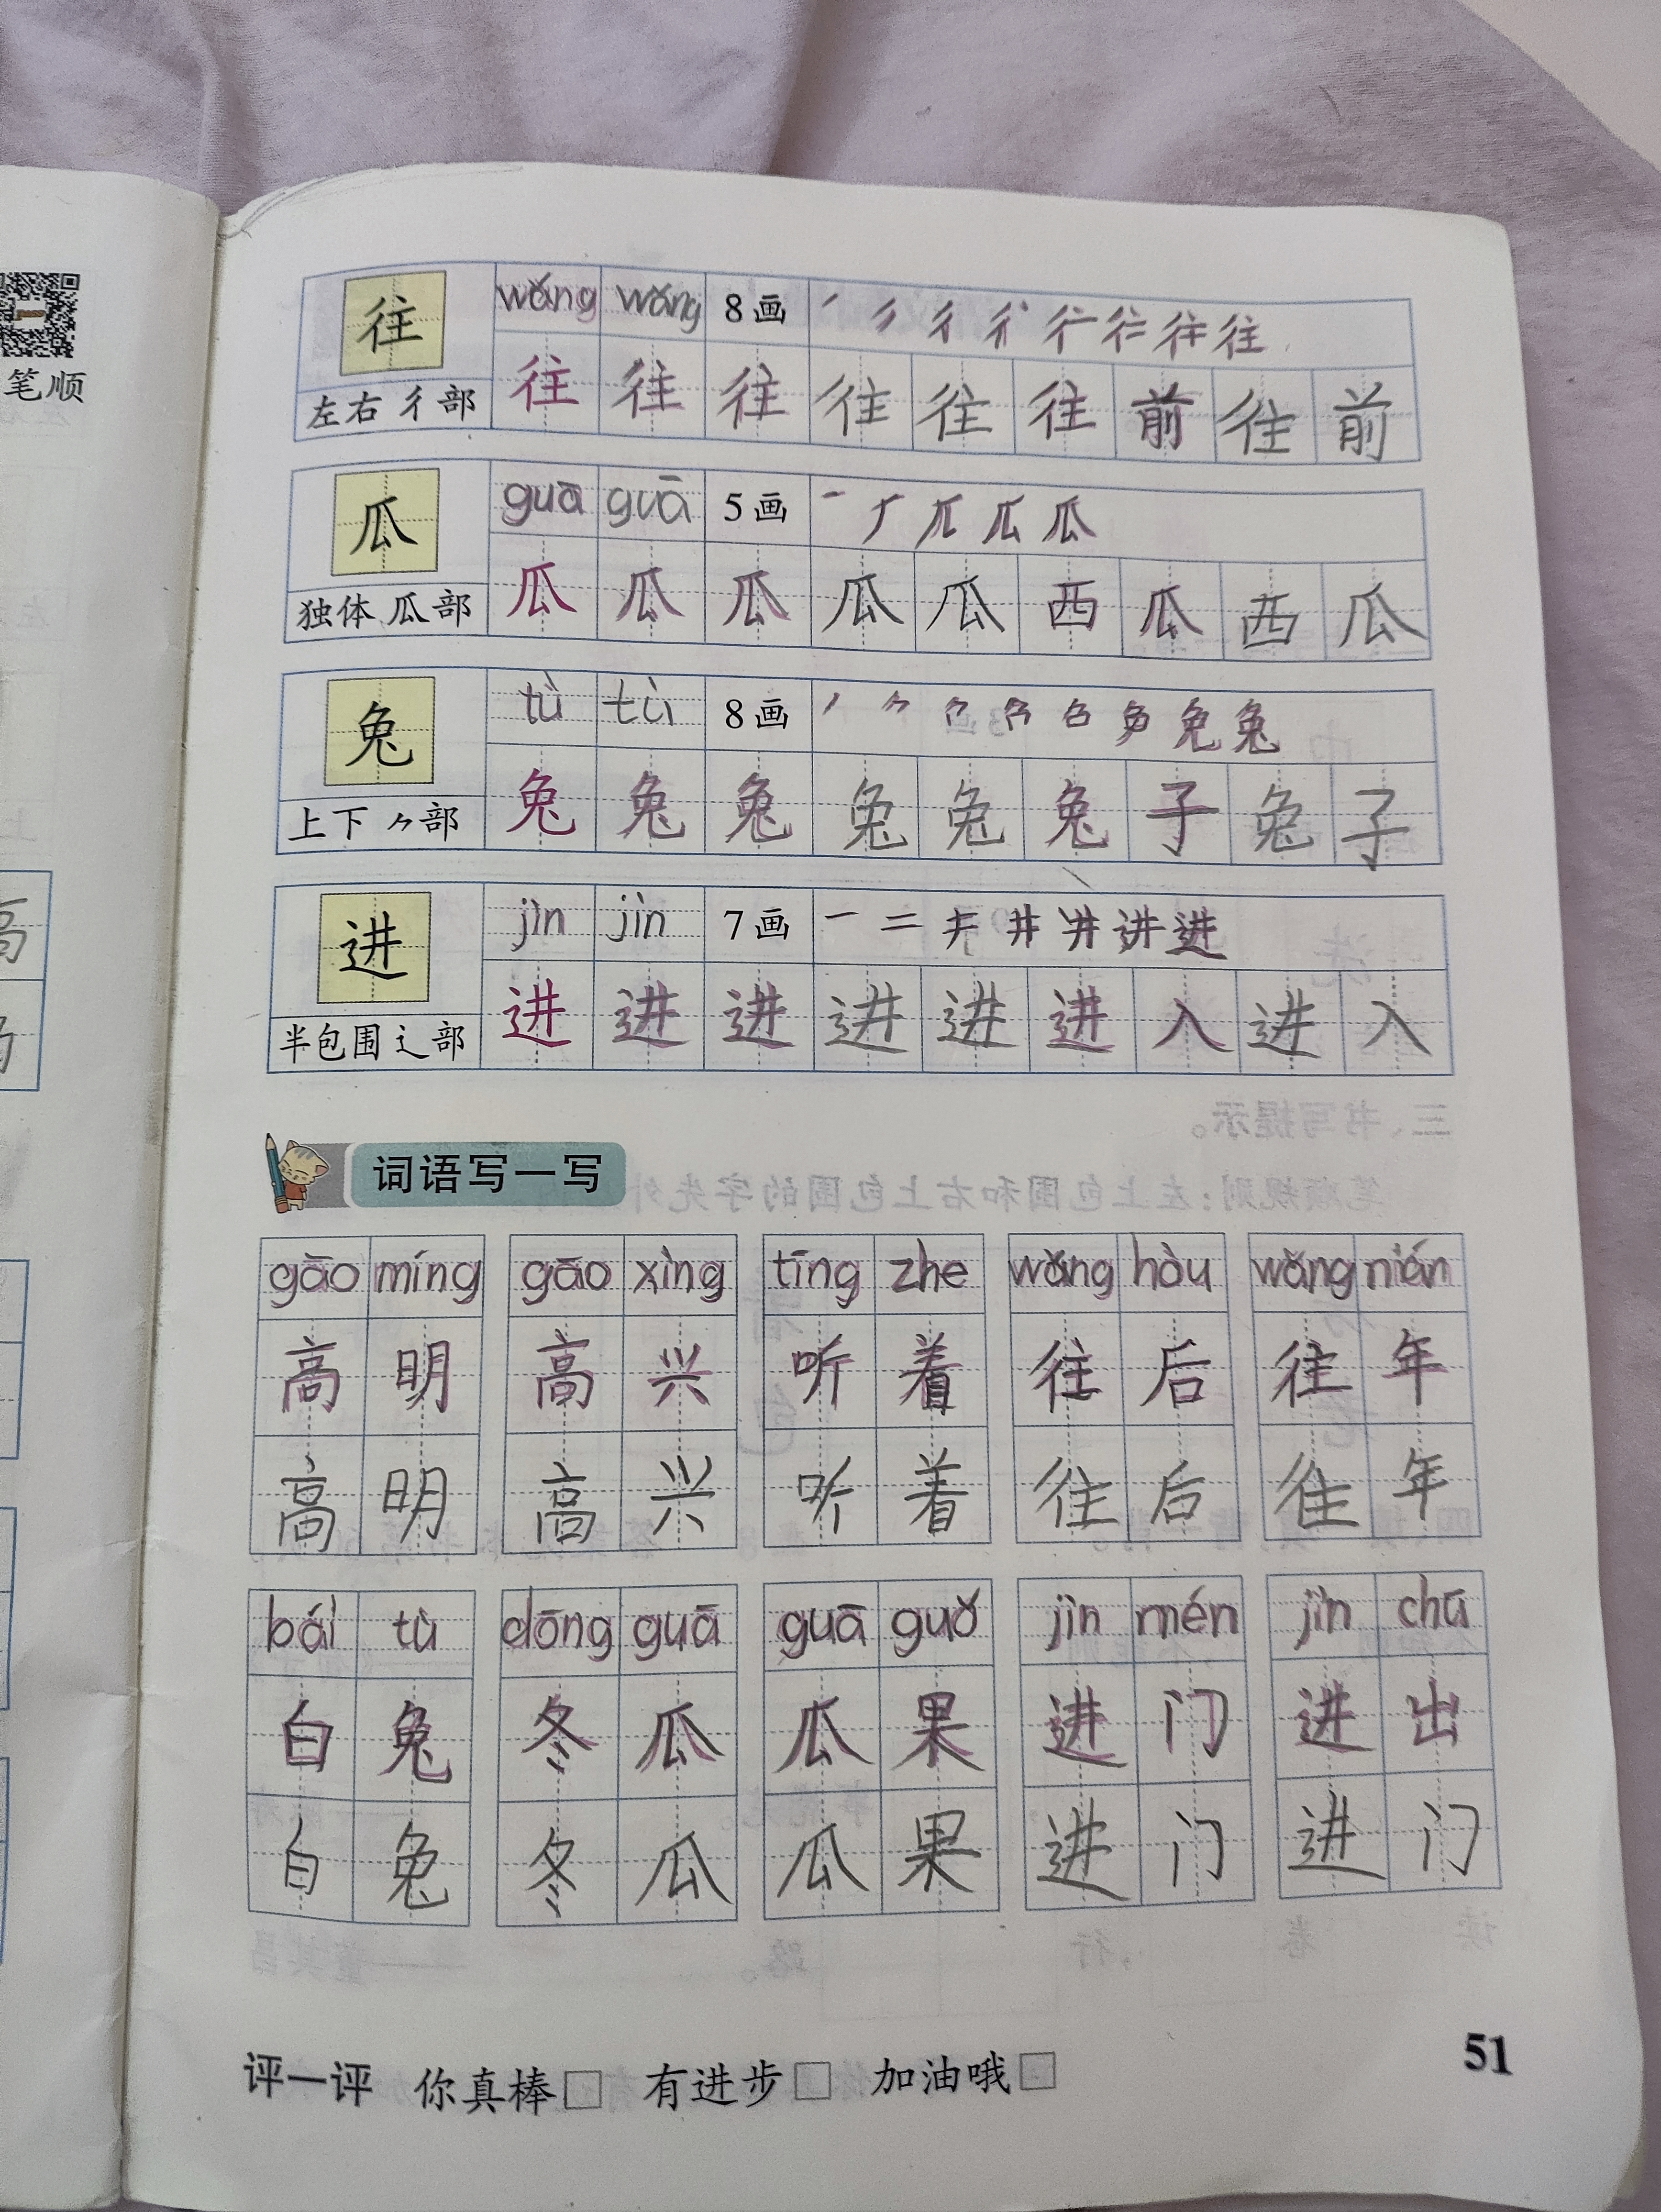 笔顺
往 wǎng wǎng 8画 丿 彳 往
左右 彳部 往 往 往 往 往 往 前 往 前
瓜 guā guā 5画 瓜
独体 瓜部 瓜 瓜 瓜 瓜 瓜 西 瓜 西 瓜
兔 tù tù 8画 丿 𠂊 兔
上下 𠂊部 兔 兔 兔 兔 兔 兔 子 兔 子
进 jìn jìn 7画 一 二 井 进
半包围 辶部 进 进 进 进 进 进 入 进 入
词语写一写
gāo míng gāo xìng tīng zhe wǎng hòu wǎng nián
高 明 高 兴 听 着 往 后 往 年
高 明 高 兴 听 着 往 后 往 年
bái tù dōng guā guā guǒ jìn mén jìn chū
白 兔 冬 瓜 瓜 果 进 门 进 出
白 兔 冬 瓜 瓜 果 进 门 进 门
评一评 你真棒□ 有进步□ 加油哦□
51